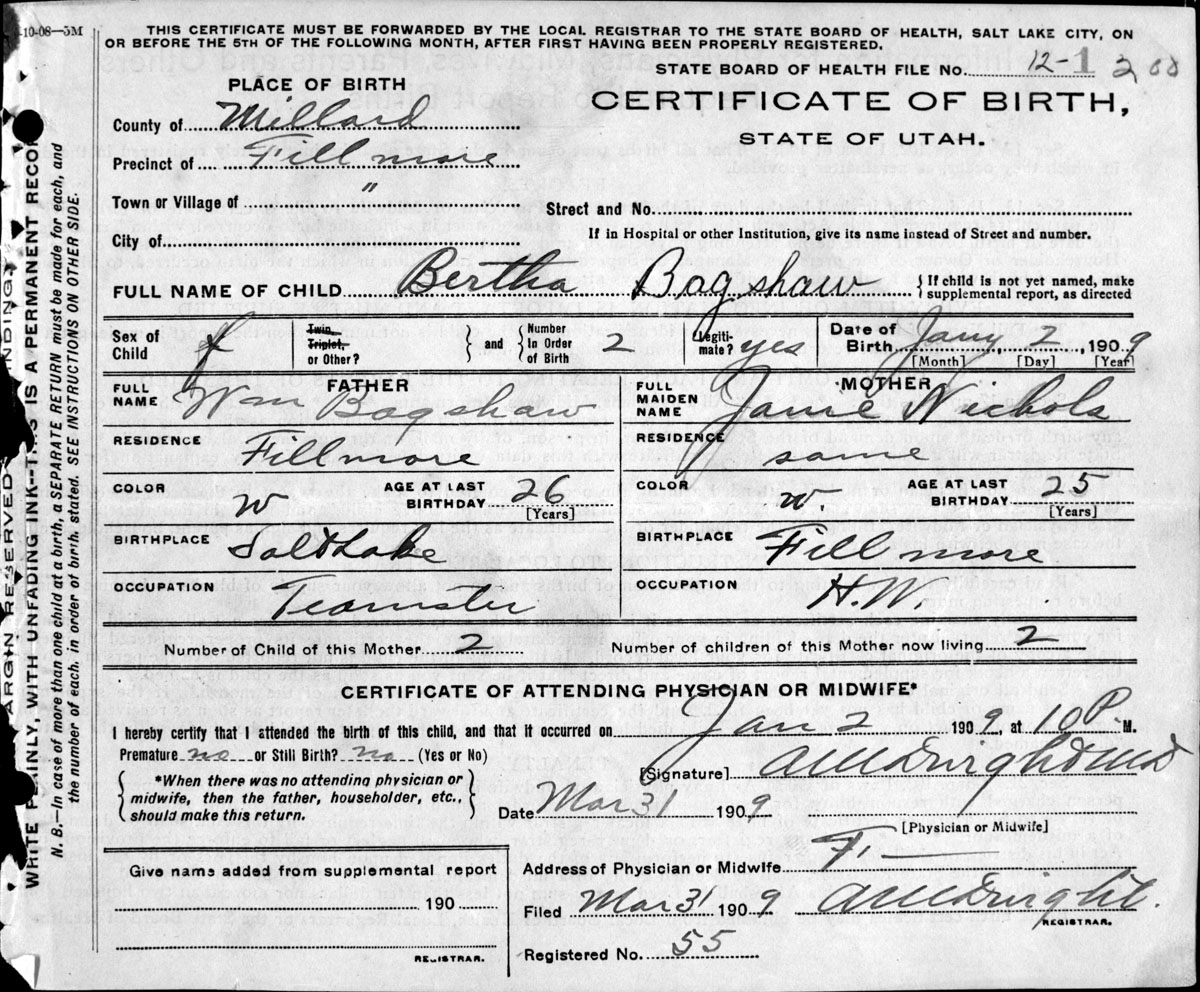 -10-08—5M
THIS CERTIFICATE MUST BE FORWARDED BY THE LOCAL REGISTRAR TO THE STATE BOARD OF HEALTH, SALT LAKE CITY, ON
OR BEFORE THE 5TH OF THE FOLLOWING MONTH, AFTER FIRST HAVING BEEN PROPERLY REGISTERED.
STATE BOARD OF HEALTH FILE NO. 12-1 200
CERTIFICATE OF BIRTH,
STATE OF UTAH.
PLACE OF BIRTH
County of Millard
Precinct of Fillmore
Town or Village of "
Street and No.
City of
If in Hospital or other Institution, give its name instead of Street and number.
FULL NAME OF CHILD Bertha Bagshaw { If child is not yet named, make
supplemental report, as directed
Sex of Child f Twin, Triplet, or Other? } and { Number In Order of Birth 2 Legiti-mate? yes Date of Birth Jany 2, 1909
[Month] [Day] [Year]
FATHER
FULL NAME Wm Bagshaw
RESIDENCE Fillmore
COLOR w AGE AT LAST BIRTHDAY 26 [Years]
BIRTHPLACE Salt Lake
OCCUPATION Teamster
MOTHER
FULL MAIDEN NAME Jane Nichols
RESIDENCE same
COLOR w. AGE AT LAST BIRTHDAY 25 [Years]
BIRTHPLACE Fillmore
OCCUPATION H.W.
Number of Child of this Mother 2 Number of children of this Mother now living 2
CERTIFICATE OF ATTENDING PHYSICIAN OR MIDWIFE*
I hereby certify that I attended the birth of this child, and that it occurred on Jan 2 1909, at 10 P M.
Premature no or Still Birth? no (Yes or No)
{ *When there was no attending physician or
midwife, then the father, householder, etc.,
should make this return. }
[Signature]
Date Mar 31 1909
[Physician or Midwife]
Give name added from supplemental report
190
REGISTRAR.
Address of Physician or Midwife F.
Filed Mar 31 1909
REGISTRAR.
Registered No. 55
WRITE PLAINLY, WITH UNFADING INK--THIS IS A PERMANENT RECORD
N. B.—In case of more than one child at a birth, a SEPARATE RETURN must be made for each, and
the number of each, in order of birth, stated. SEE INSTRUCTIONS ON OTHER SIDE.